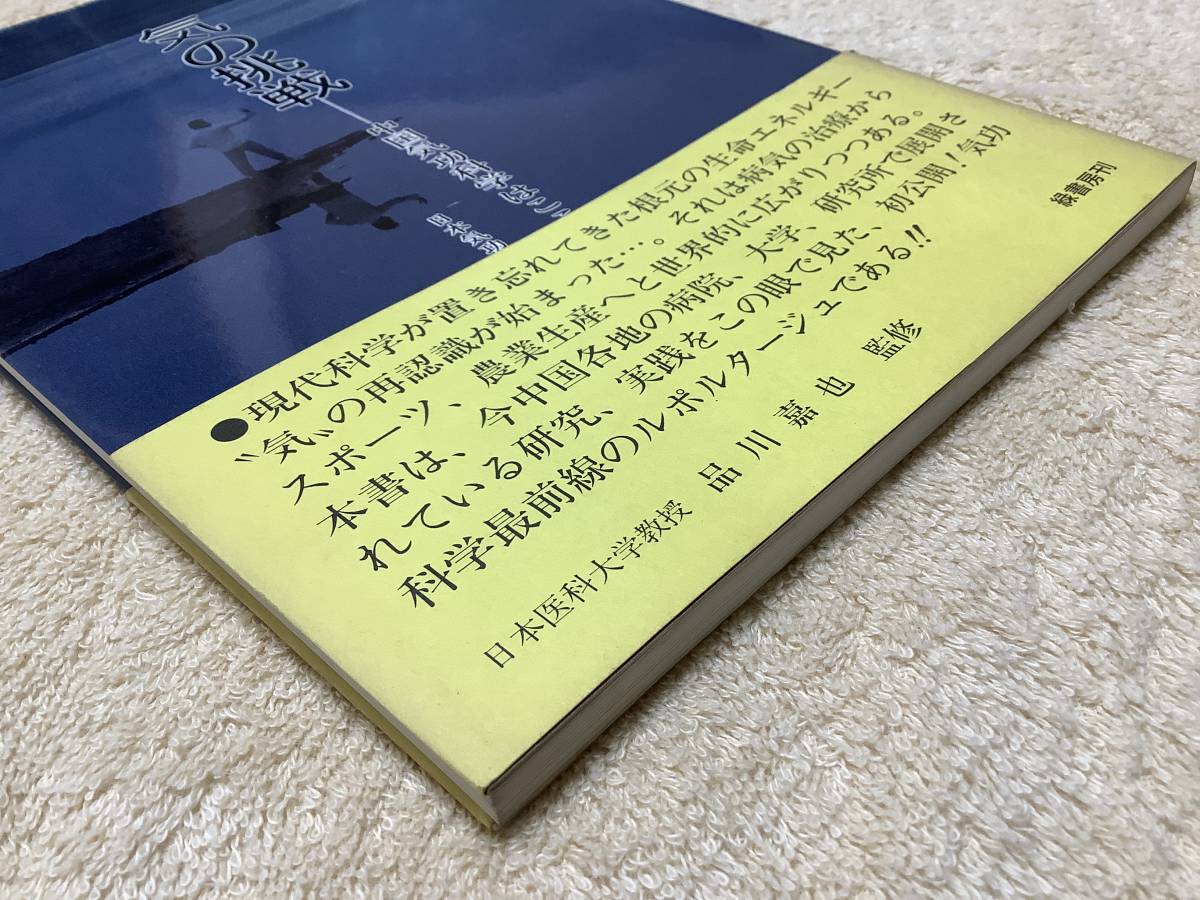 気の挑戦
中国気功科学はこ
日本気功
●現代科学が置き忘れてきた根元の生命エネルギー
〝気〟の再認識が始まった…。それは病気の治療から
スポーツ、農業生産へと世界的に広がりつつある。
本書は、今中国各地の病院、大学、研究所で展開さ
れている研究、実践をこの眼で見た、初公開！気功
科学最前線のルポルタージュである!!
日本医科大学教授 品川嘉也 監修
緑書房刊